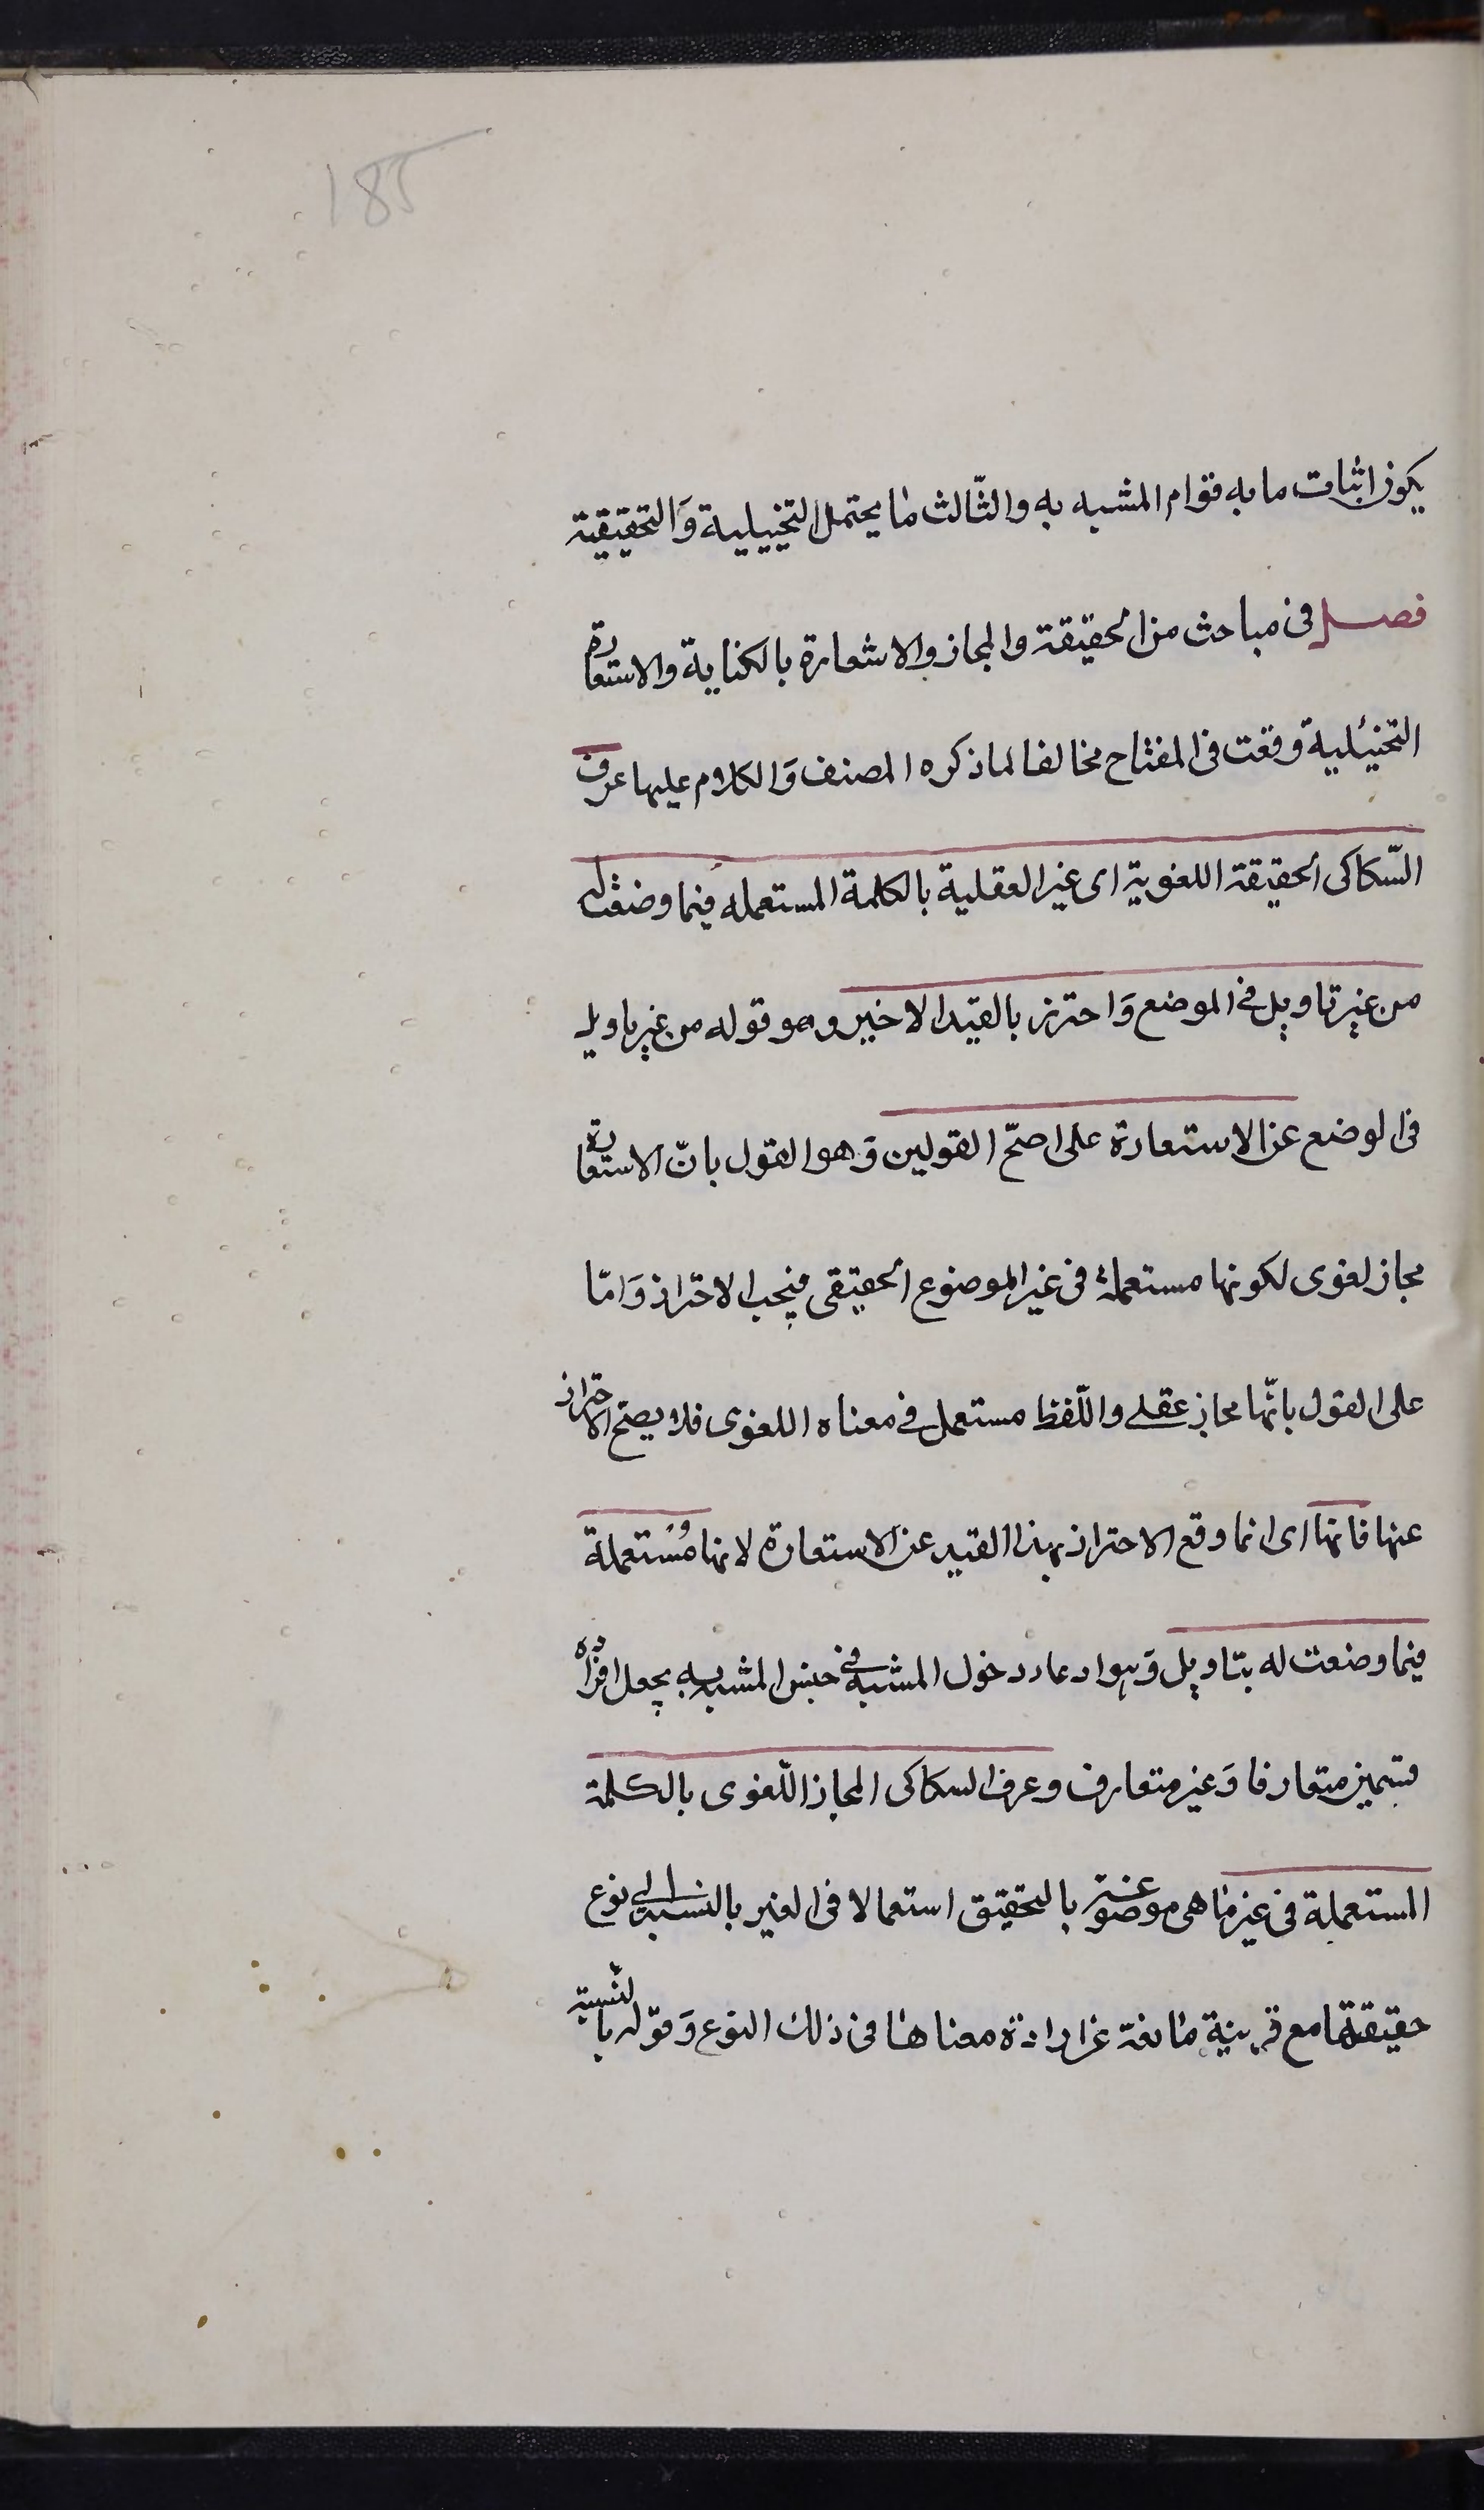 185
يكون اثبات ما به قوام المشبه به والثّالث ما يحتمل التخييلية وَالتحقيقية
فصل فى مباحث من الحقيقة والمجاز والاشعارة بالكناية والاستعارة
التخئيلية وقعت فى المفتاح مخالفا لما ذكره المصنف وَالكلام عليها عرف
السّكاكى الحقيقة اللغوية اى غير العقلية بالكلمة المستعمله فيما وضعت له
من غير تاويل فى الموضع وَاحترز بالقيد الاخير وهو قوله من غير تاويل
فى الوضع عن الاستعارة على اصحّ القولين وَهو القول بانّ الاستعارة
مجاز لغوى لكونها مستعملة فى غير الموضوع الحقيقى فيجب الاحتراز وَامّا
على القول بانّها مجاز عقلى واللّفظ مستعمل فى معناه اللغوى فلا يصحّ الاحتراز
عنها فانها اى انما وقع الاحتراز بهذا القيد عن الاستعارة لانها مُستعملة
فيما وضعت له بتاويل وَهو ادعاء دخول المشبه فى جنس المشبه به بجعل افراده
قسمين متعارفا وَغير متعارف وعرف السكاكى المجاز اللّغوى بالكلمة
المستعملة فى غير ما هى موضوعة بالتحقيق استعمالا فى الغير بالنسبة الى نوع
حقيقتها مع قرينة مانعة عن ارادة معناها فى ذلك النوع وَقوله بالنسبة